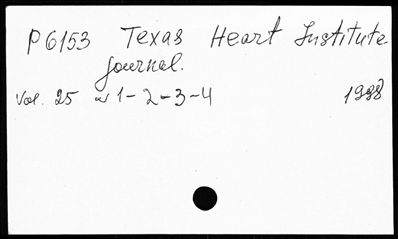 P 6153 Texas Heart Institute
Journal.
Vol. 25 № 1-2-3-4 1998